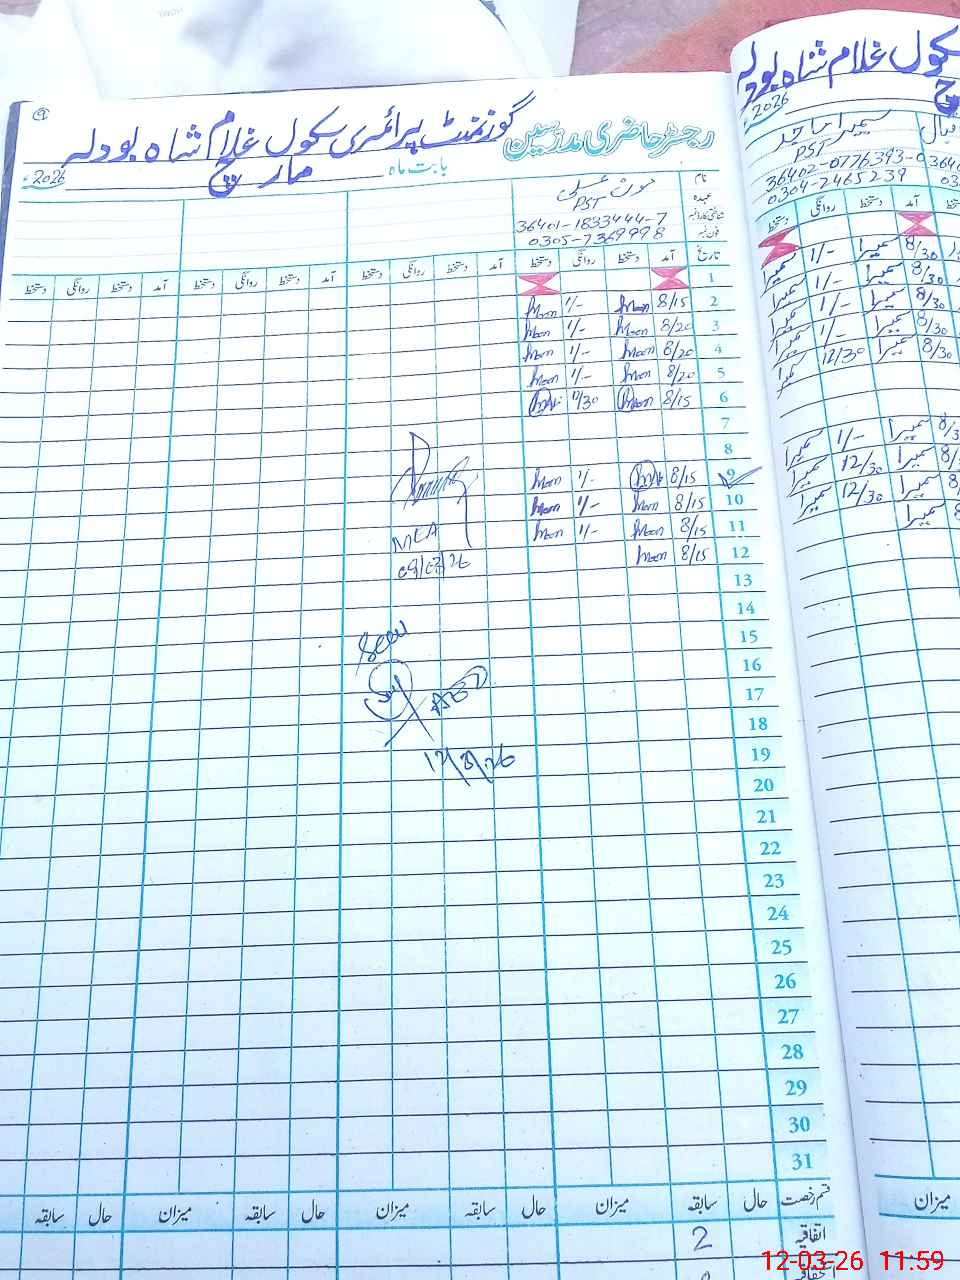 رجسٹر حاضری مدرسین گورنمنٹ پرائمری سکول غلام شاہ بودلہ
بابت ماہ مارچ 2026ء
نام مون علی
عہدہ PST
شناختی کارڈ نمبر 36401-1833444-7
فون نمبر 0305-7369998
تاریخ آمد دستخط روانگی دستخط آمد دستخط روانگی دستخط آمد دستخط روانگی دستخط
1
2 8/15 Moon 1/- Moon
3 8/20 Moon 1/- Moon
4 8/20 Moon 1/- Moon
5 8/20 Moon 1/- Moon
6 8/15 Moon 11/30
7
8
9 8/15 1/- Moon
10 8/15 Moon 1/- Moon
11 8/15 Moon 1/- Moon
12 8/15 Moon
MEA
09/03/26
13
14
15
Seen
16
17
AEO
18
19
12/3/26
20
21
22
23
24
25
26
27
28
29
30
31
قسم رخصت حال سابقہ میزان حال سابقہ میزان حال سابقہ میزان حال سابقہ
اتفاقیہ 2
سکول غلام شاہ بودلہ
مارچ 2026ء
سمیرا ماجد
PST
36402-0776393-0
0304-2465239
آمد دستخط روانگی دستخط
8/30 سمیرا 1/- سمیرا
8/30 سمیرا 1/- سمیرا
8/30 سمیرا 1/- سمیرا
8/30 سمیرا 1/- سمیرا
8/30 سمیرا 12/30 سمیرا
سمیرا 1/- سمیرا
سمیرا 12/30 سمیرا
سمیرا 12/30 سمیرا
سمیرا
میزان
12-03-26 11:59